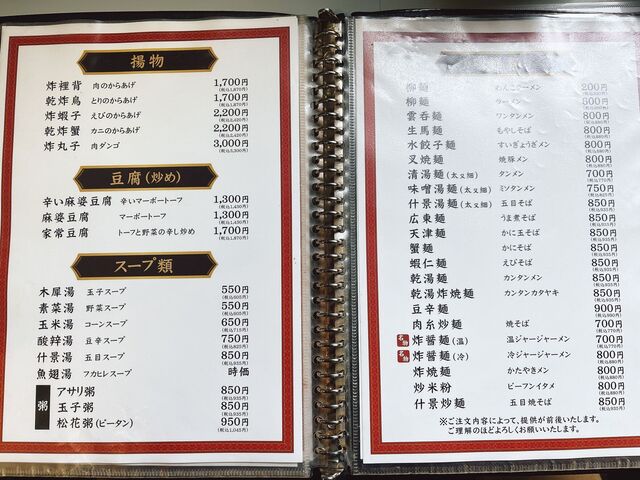 揚物
炸裡脊 肉のからあげ 1,700円 (税込1,870円)
乾炸鳥 とりのからあげ 1,700円 (税込1,870円)
炸蝦子 えびのからあげ 2,200円 (税込2,420円)
乾炸蟹 カニのからあげ 2,200円 (税込2,420円)
炸丸子 肉ダンゴ 3,000円 (税込3,300円)
豆腐(炒め)
辛い麻婆豆腐 辛いマーボートーフ 1,300円 (税込1,430円)
麻婆豆腐 マーボートーフ 1,300円 (税込1,430円)
家常豆腐 トーフと野菜の辛し炒め 1,700円 (税込1,870円)
スープ類
木犀湯 玉子スープ 550円 (税込605円)
素菜湯 野菜スープ 550円 (税込605円)
玉米湯 コーンスープ 650円 (税込715円)
酸辣湯 豆辛スープ 750円 (税込825円)
什景湯 五目スープ 850円 (税込935円)
魚翅湯 フカヒレスープ 時価
粥
アサリ粥 850円 (税込935円)
玉子粥 850円 (税込935円)
松花粥(ピータン) 950円 (税込1,045円)
柳麺 めんこラーメン 200円
柳麺 ラーメン 500円
雲呑麺 ワンタンメン 800円
生馬麺 もやしそば 800円 (税込880円)
水餃子麺 すいぎょうざメン 800円 (税込880円)
叉焼麺 焼豚メン 800円 (税込880円)
清湯麺(太ㄡ細) タンメン 700円 (税込770円)
味噌湯麺(太ㄡ細) ミソタンメン 750円 (税込825円)
什景湯麺(太ㄡ細) 五目そば 850円 (税込935円)
広東麺 うま煮そば 850円 (税込935円)
天津麺 かに玉そば 850円 (税込935円)
蟹麺 かにそば 850円 (税込935円)
蝦仁麺 えびそば 850円 (税込935円)
乾湯麺 カンタンメン 850円 (税込935円)
乾湯炸焼麺 カンタンカタヤキ 850円 (税込935円)
豆辛麺 900円 (税込990円)
肉糸炒麺 焼そば 700円 (税込770円)
名物 炸醤麺(温) 温ジャージャーメン 700円 (税込770円)
名物 炸醤麺(冷) 冷ジャージャーメン 800円 (税込880円)
炸焼麺 かたやきメン 800円 (税込880円)
炒米粉 ビーフンイタメ 800円 (税込880円)
什景炒麺 五目焼そば 850円 (税込935円)
※ご注文内容によって、提供が前後いたします。
ご理解のほどよろしくお願いいたします。